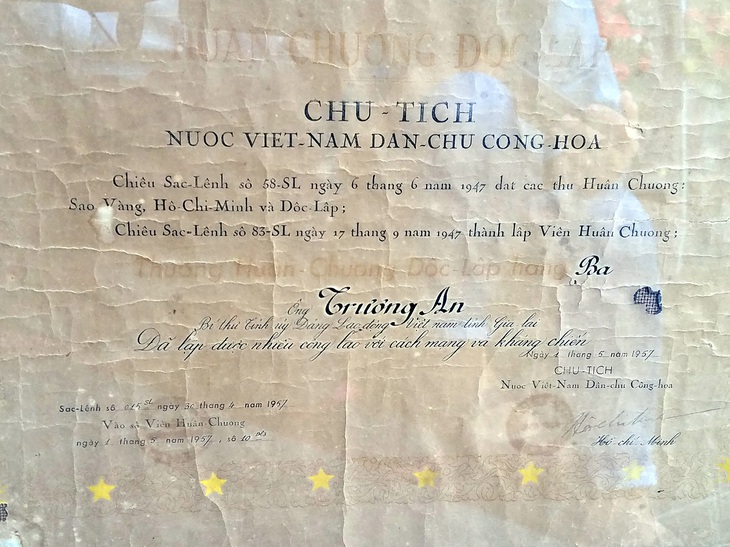 HUAN-CHUONG DOC-LAP
CHU-TICH
NUOC VIET-NAM DAN-CHU CONG-HOA
Chiêu Sac-Lênh sô 58-SL ngày 6 thang 6 nam 1947 dat cac thu Huân Chuong:
Sao Vàng, Hô-Chi-Minh và Dôc-Lâp;
Chiêu Sac-Lênh sô 83-SL ngày 17 thang 9 nam 1947 thành lâp Viên Huân Chuong;
Thuong Huân-Chuong Dôc-Lâp hang Ba
Ông Trương An
Bí thư Tỉnh ủy Đảng Lao động Việt nam tỉnh Gia lai
Đã lập được nhiều công lao với cách mạng và kháng chiến
Ngày 1 thang 5 nam 1957
CHU-TICH
Nuoc Viêt-Nam Dân-chu Công-hoa
Sac-Lênh sô 015 SL ngày 30 thang 4 nam 1957
Vào sô Viên Huân Chuong
ngày 1 thang 5 nam 1957, sô 10
Hồ chí Minh